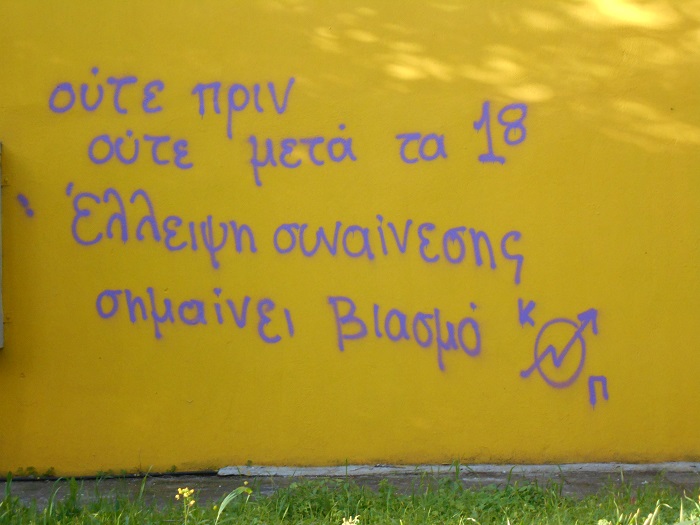 ούτε πριν
ούτε μετά τα 18
Έλλειψη συναίνεσης
σημαίνει βιασμό
Κ
Π